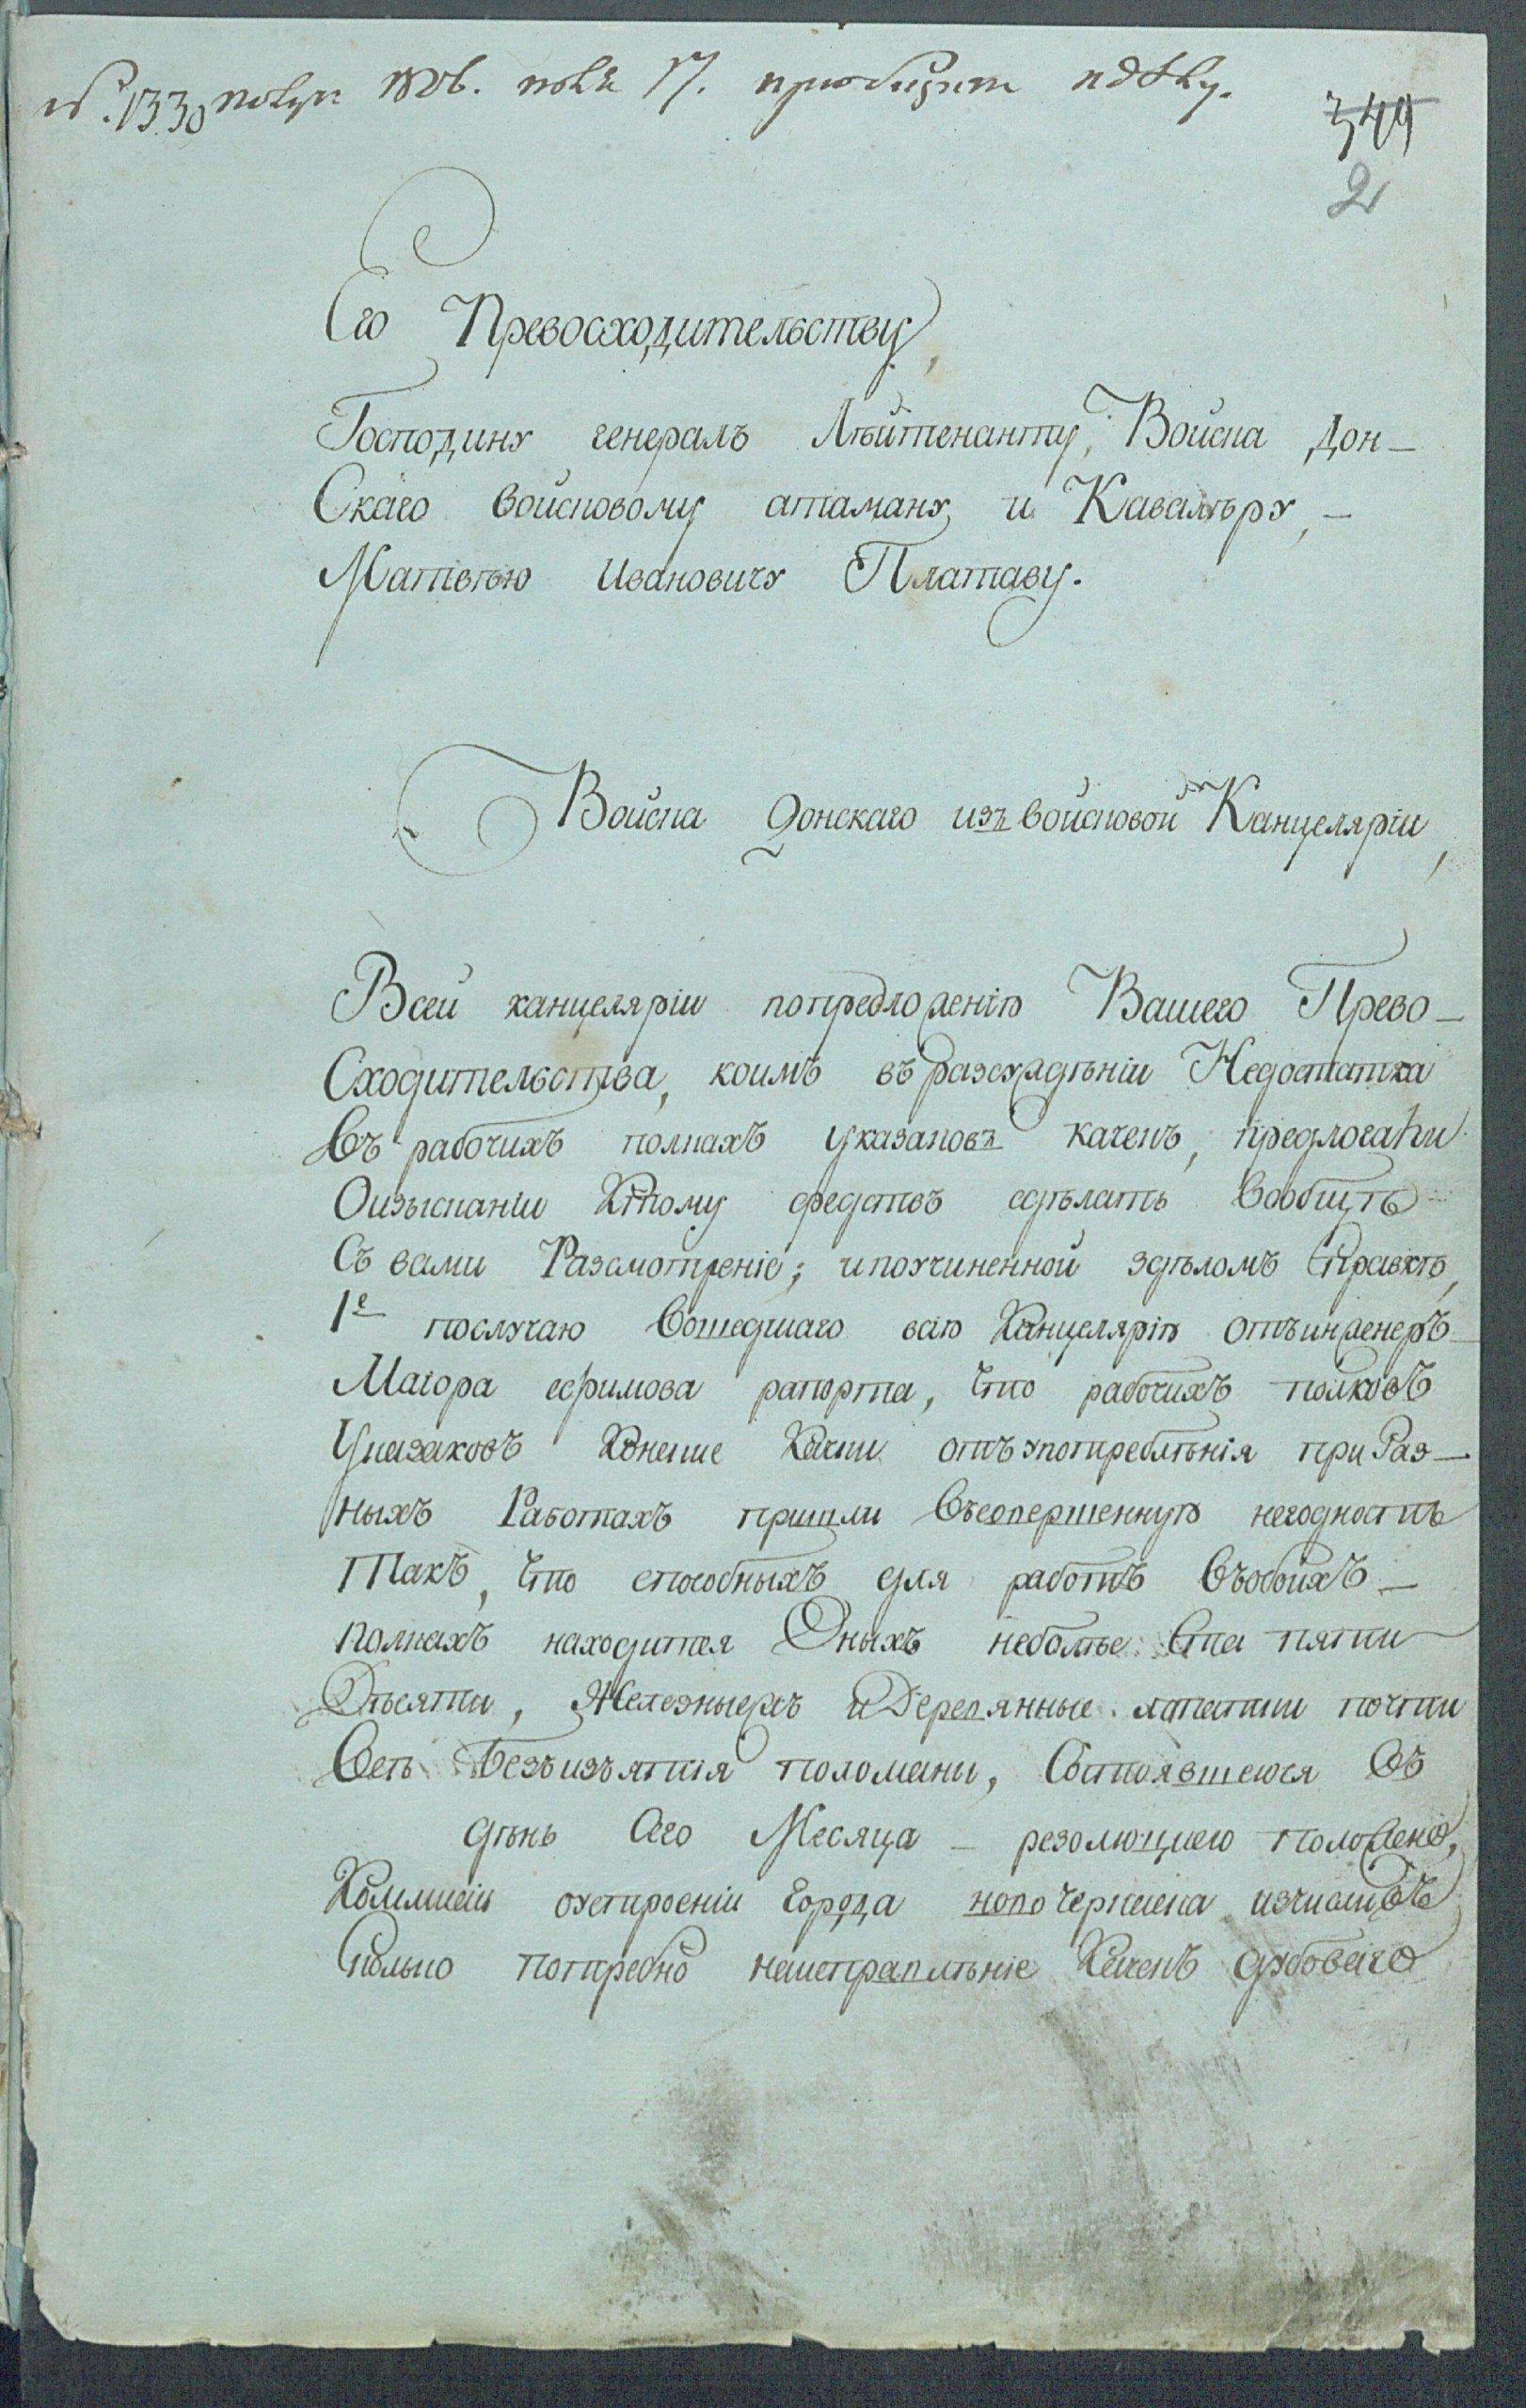 №. 1330 получ: 1806. ноя 17. приобщить къ дѣлу.
344
2
Его Превосходительству,
Господину генералъ Лѣйтенанту, Войска Дон-
Скаго войсковому атаману, и Кавалѣру,-
Матвѣю Ивановичу Платаву.
Войска Донскаго изъ войсковой Канцеляріи,
Всей канцеляріи попредложенію Вашего Прево-
Сходительства, коимъ въ разсуждѣніи Недостатка
Въ рабочихъ полкахъ указаковъ каченъ, предлогали
Оизысканіи Ктому средствъ сдѣлать вообщѣ
Съ вами Разсмотреніе; ипоучиненной здѣломъ справкѣ,
1е послучаю Вошедшаго всію Канцелярію отъинженеръ-
Маіора ефимова рапорта, Что рабочихъ полковъ
Указаковъ Конешне Качки отъупотреблѣнія при Раз-
ныхъ Работахъ пришли Въсовершенную негодность
Такъ, Что способныхъ для работъ Въобоихъ-
полкахъ находится Оныхъ неболѣе Ста пяти
Дѣсяти, Железныежъ и Деревянные лопатки почти
Все Безъизъятія поломаны, Состоявшеюся Въ
дѣнь Сего Месяца - резолюціею положено,
Коммисіи оустроеніи города новочеркаска изчисливъ
Сколько потребно наисправлѣніе Каченъ дубоваго